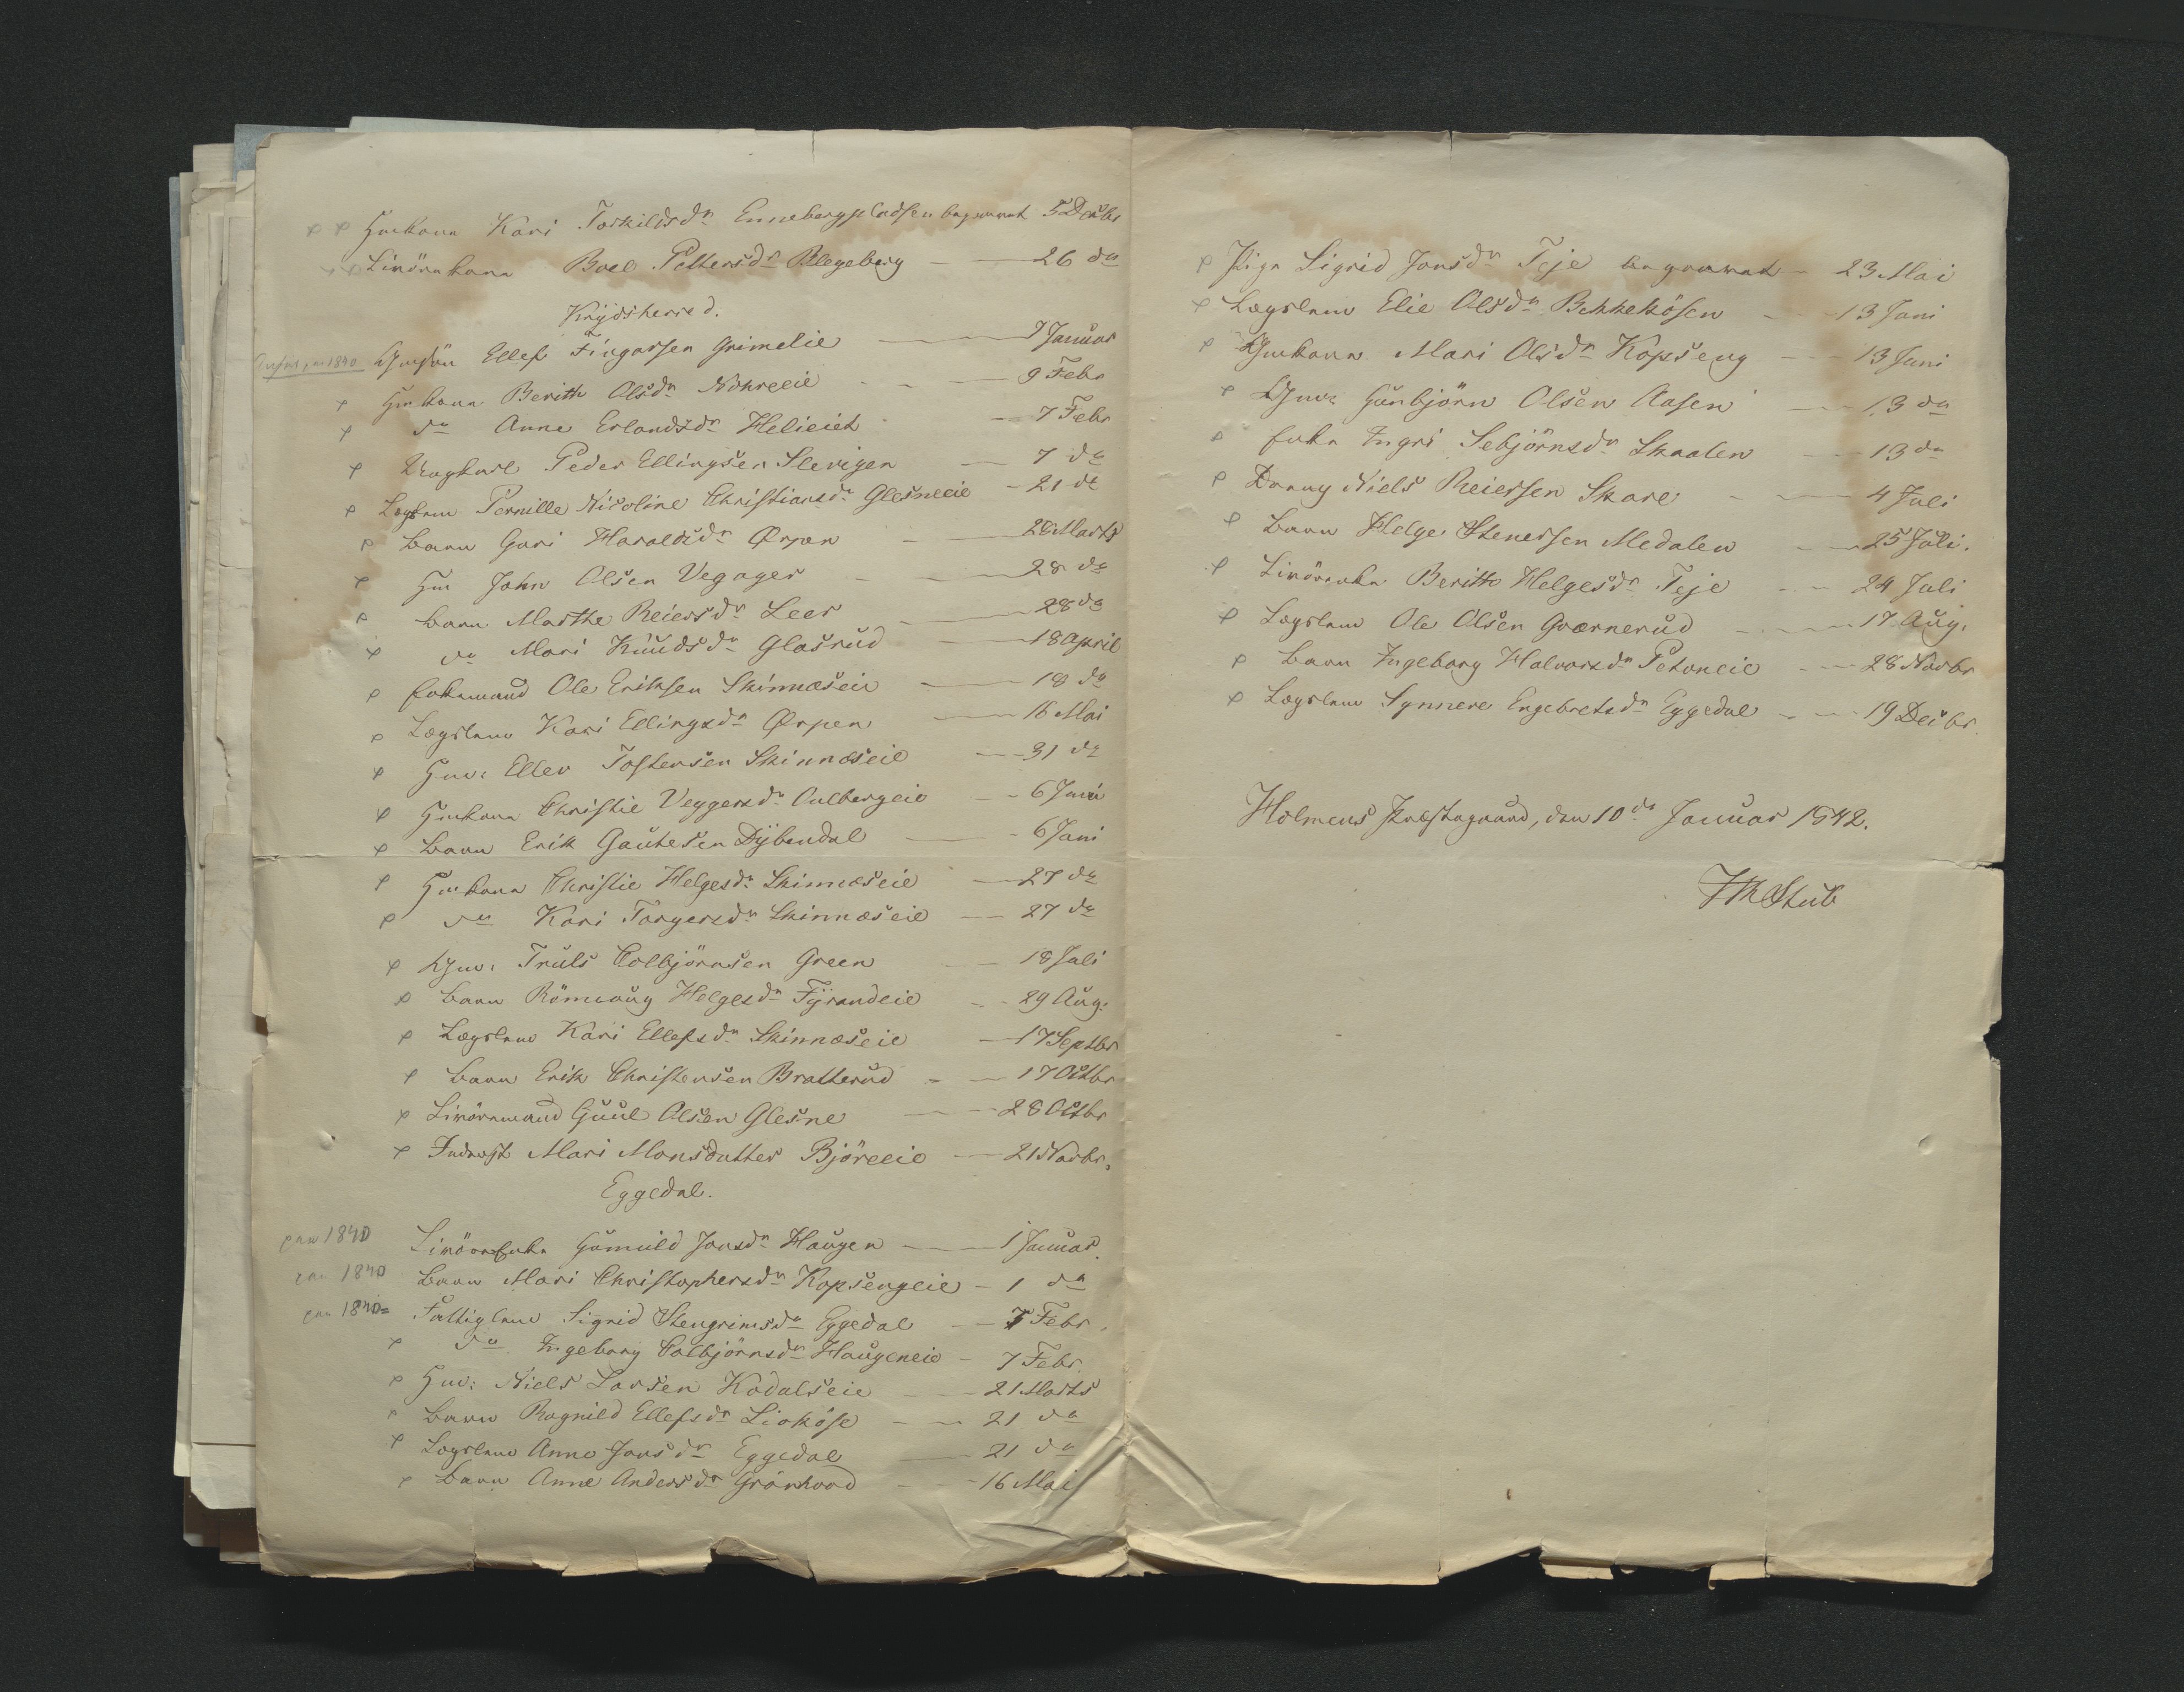 Huuskone Kari Torkildsdr Ennebergpladsen begravet 5 Decbr
Livörekone Boel Pettersdr Blegeberg 26 do
Krydsherred.
anført pro 1840 Gmsön Ellef Fingarsen Grimelie 7 Januar
Hmkone Berith Olsdr Nohreeie 9 Febr
do Anne Erlandsdr Helieiet 7 Febr
Ungkarl Peder Ellingsen Slevigen 7 do
Lægslem Pernille Nicoline Christiansdr Glesneeie 21 do
Barn Guri Haraldsdr Ørpen 28 Marts
Hm John Olsen Vegager 28 do
Barn Marthe Reiersdr Leer 28 do
do Mari Knudsdr Glasrud 18 April
Enkemand Ole Eriksen Skinnæseie 18 do
Lægslem Kari Ellingsdr Ørpen 16 Mai
Hm: Ellev Tostensen Skinnæseie 31 do
Hmkone Christie Veggersdr Oulbergeie 6 Juni
Barn Erik Gautesen Dybendal 6 Juni
Hmkone Christie Helgesdr Skinnæseie 27 do
do Kari Torgersdr Skinnæseie 27 do
Gm: Truls Colbjörnsen Green 18 Juli
Barn Römoug Helgesdr Fyrandeie 29 Aug:
Lægslem Kari Ellefsdr Skinnæseie 17 Septbr
Barn Erik Christensen Bratterud 17 Octbr
Livöremand Guul Olsen Glesne 28 Octbr
Inderst Mari Monsdatter Björeeie 21 Novbr.
Eggedal.
pro 1840 Livöreenke Gumild Jonsdr Haugen 1 Januar.
pro 1840 Barn Mari Christophersdr Kopsengeie 1 do
pro 1840 Fattiglem Sigrid Stengrimsdr Eggedal 7 Febr.
do Ingeborg Colbjörnsdr Haugeneie 7 Febr
Hm: Niels Larsen Kodalseie 21 Marts
Barn Ragnild Ellefsdr Liaköse 21 do
Lægslem Anne Jonsdr Eggedal 21 do
Barn Anne Andersdr Grönhovd 16 Mai
Pige Sigrid Jonsdr Teje begravet 23 Mai
Lægslem Elie Olsdr Bekkekösen 13 Juni
Gmkone Mari Olsdr Kopseng 13 Juni
Gm: Gunbjörn Olsen Aasen 13 do
Enke Ingri Sebjörnsdr Skaalen 13 do
Dreng Niels Reiersen Skare 4 Juli
Barn Helge Stenersen Medalen 25 Juli.
Livöreenke Berith Helgesdr Teje 24 Juli
Lægslem Ole Olsen Gværnerud 17 Aug.
Barn Ingeborg Halvorsdr Pekoneie 28 Novbr
Lægslem Synnere Engebretsdr Eggedal 19 Decbr.
Holmens Præstegaard, den 10de Januar 1842.
JMStub